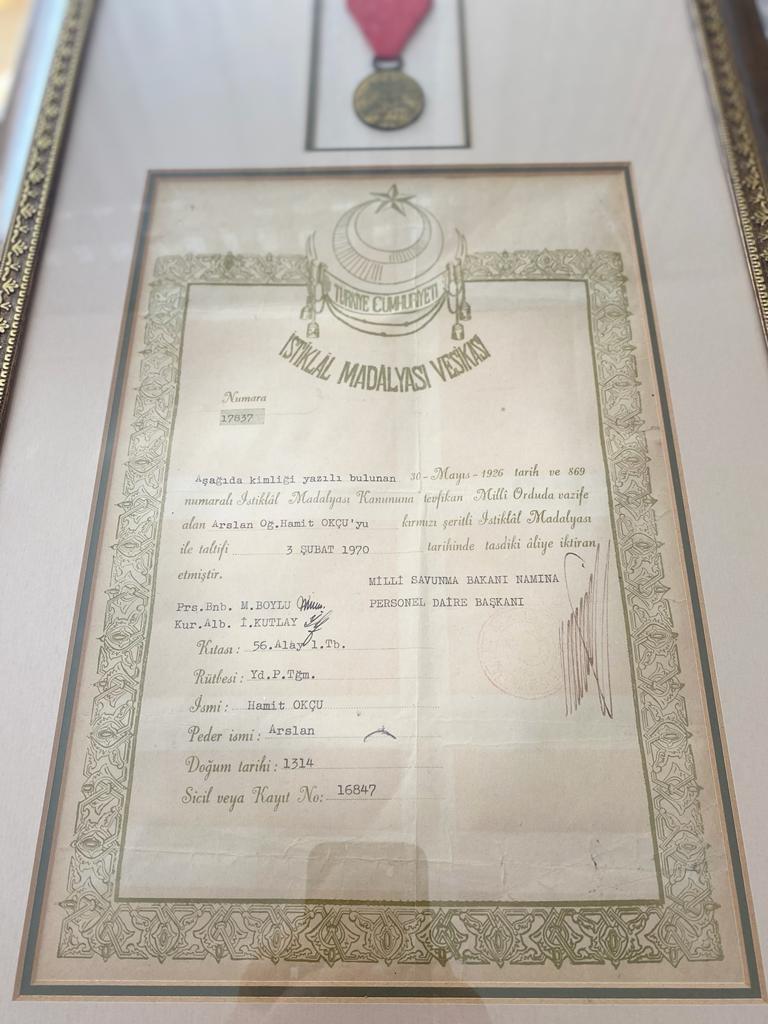 TÜRKİYE CUMHURİYETİ
İSTİKLÂL MADALYASI VESİKASI
Numara
17837
Aşağıda kimliği yazılı bulunan 30-Mayıs-1926 tarih ve 869
numaralı İstiklâl Madalyası Kanununa tevfikan Millî Orduda vazife
alan Arslan Oğ.Hamit OKÇU'yu kırmızı şeritli İstiklâl Madalyası
ile taltifi 3 ŞUBAT 1970 tarihinde tasdiki âliye iktiran
etmiştir.
MİLLİ SAVUNMA BAKANI NAMINA
PERSONEL DAİRE BAŞKANI
Prs.Bnb. M.BOYLU
Kur.Alb. İ.KUTLAY
Kıtası : 56.Alay 1.Tb.
Rütbesi : Yd.P.Tğm.
İsmi : Hamit OKÇU
Peder ismi : Arslan
Doğum tarihi : 1314
Sicil veya Kayıt No: 16847